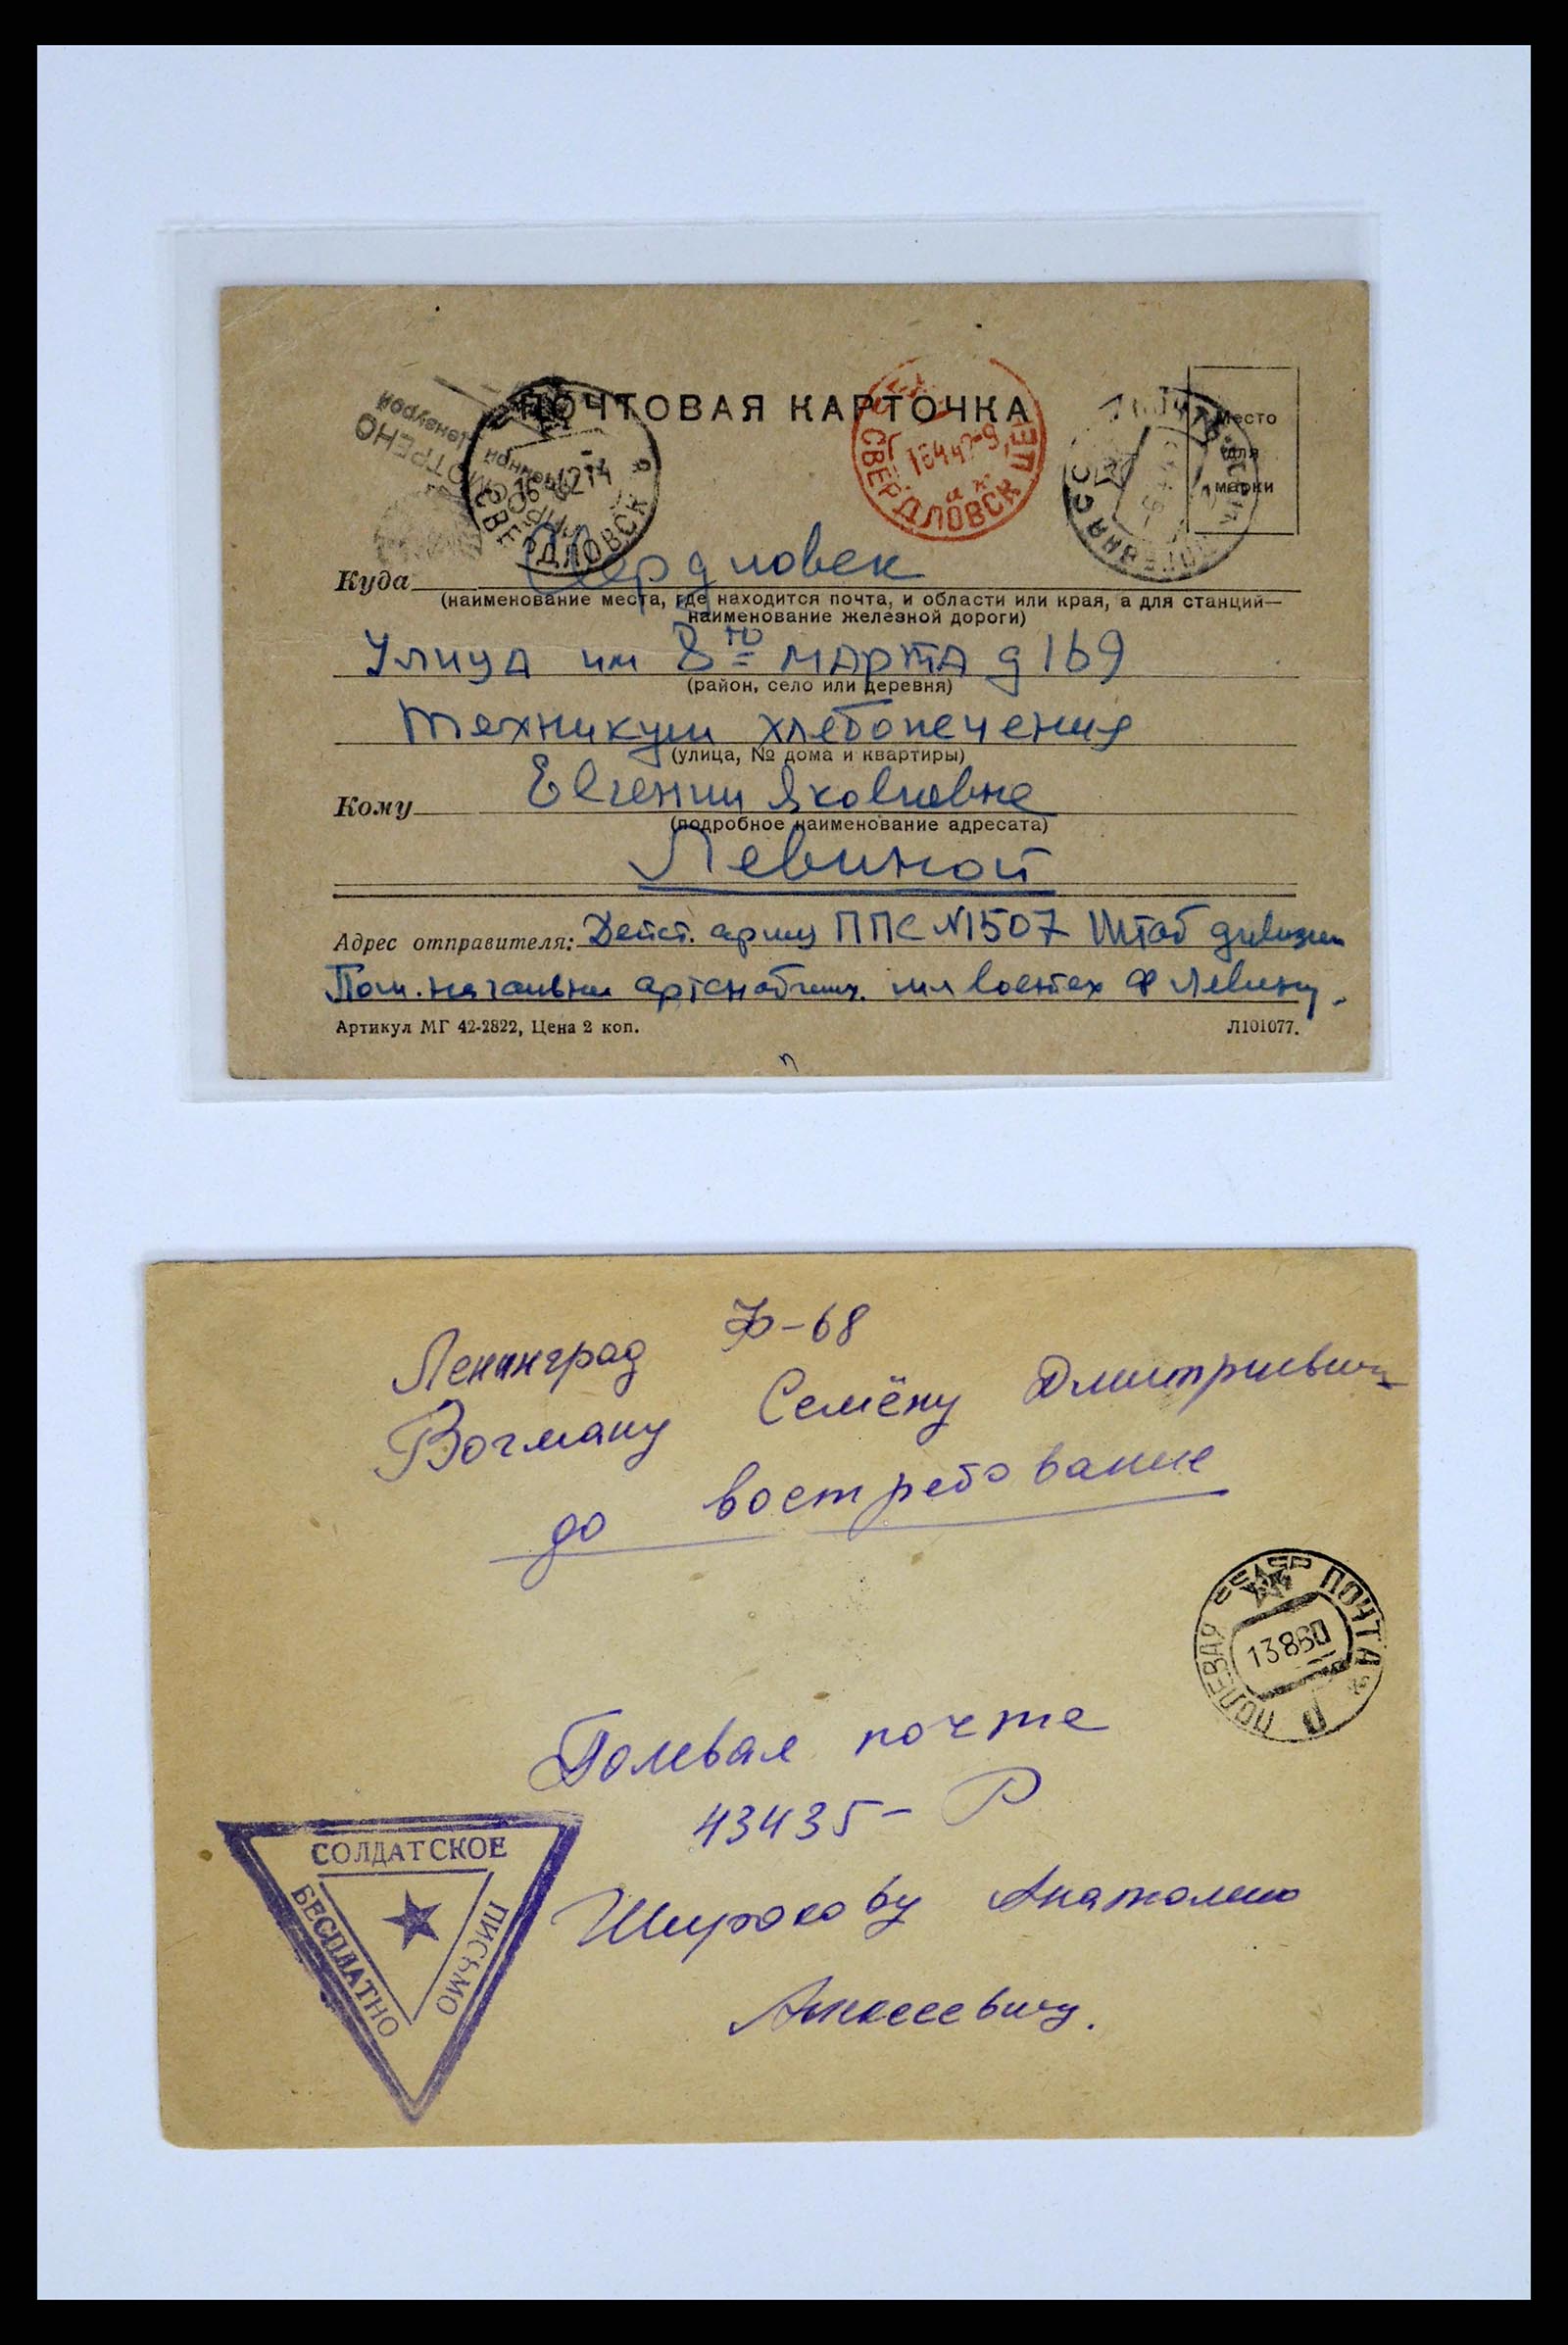 ПОЧТОВАЯ КАРТОЧКА
Просмотрено
Военной Цензурой
СВЕРДЛОВСК
16 4 42 14
СВЕРДЛОВСК
16 4 42-9
ПОЛЕВАЯ
Место
для
марки
Куда Свердловск
(наименование места, где находится почта, и области или края, а для станций—
наименование железной дороги)
Улица им 8го марта д 169
(район, село или деревня)
Техникум хлебопечения
(улица, № дома и квартиры)
Кому Евгении Яковлевне
(подробное наименование адресата)
Левиной
Адрес отправителя: Дейст. армия ППС №1507 Штаб дивизии
Пом. начальн артснабжен. мл воентех Ф Левину.
Артикул МГ 42-2822, Цена 2 коп.
Л101077.
п
Ленинград Ф-68
Вогману Семёну Дмитриевичу
до востребование
СССР ПОЛЕВАЯ ПОЧТА
13860
Полевая почта
43435- Р
Широкову Анатолию
Алексеевичу.
СОЛДАТСКОЕ
ПИСЬМО
БЕСПЛАТНО